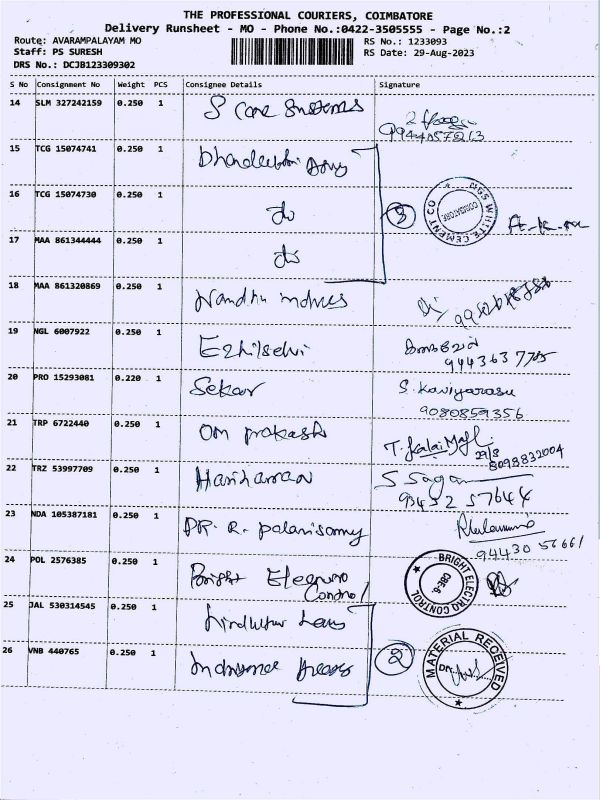 THE PROFESSIONAL COURIERS, COIMBATORE
Delivery Runsheet - MO - Phone No.:0422-3505555 - Page No.:2
Route: AVARAMPALAYAM MO
RS No.: 1233093
Staff: PS SURESH
RS Date: 29-Aug-2023
DRS No.: DCJB123309302
S No Consignment No Weight PCS Consignee Details Signature
14 SLM 327242159 0.250 1 S Care Systems
15 TCG 15074741 0.250 1
16 TCG 15074730 0.250 1 do
3
NGS WHITE CEMENT CO
COIMBATORE
17 MAA 861344444 0.250 1 do
18 MAA 861320869 0.250 1 Nandhu
19 NGL 6007922 0.250 1 Ezhilselvi
20 PRO 15293081 0.220 1 Sekar S. Kaviyarasu
9080859356
21 TRP 6722440 0.250 1 Om prakash
29/8
8098832004
22 TRZ 53997709 0.250 1 Hariharan S Sagar
93452 57644
23 NDA 105387181 0.250 1 DR. R. palanisamy
94430 56661
24 POL 2576385 0.250 1 Bright Electro
Control
BRIGHT ELECTRO CONTROL
CBE-6
25 JAL 530314545 0.250 1
26 VNB 440765 0.250 1
2
MATERIAL RECEIVED